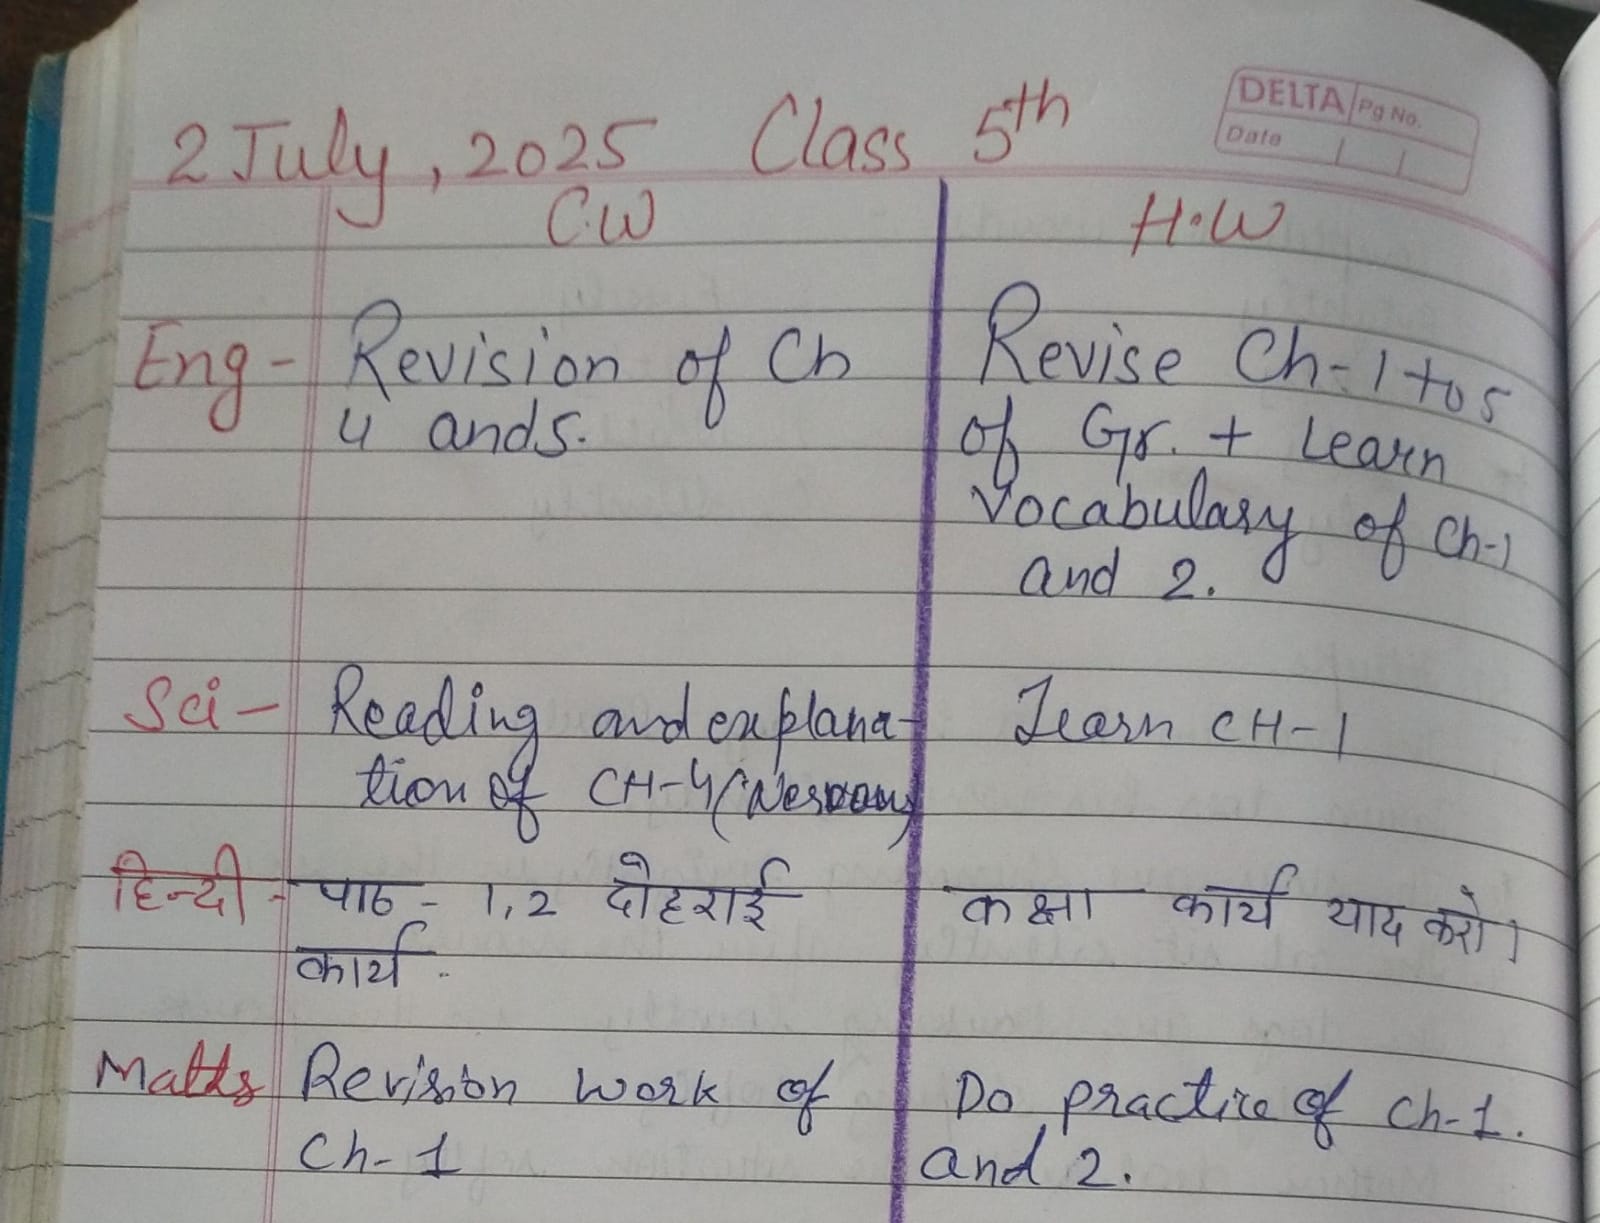 DELTA Pg No.
Date
2 July, 2025 Class 5th
C.W H.W
Eng - Revision of Ch Revise Ch-1 to 5
4 and 5. of Gr. + Learn
Vocabulary of Ch-1
and 2.
Sci - Reading and explana- Learn CH-1
tion of CH-4 (Nervous)
हिन्दी - पाठ - 1, 2 दोहराई कक्षा कार्य याद करो।
कार्य.
Maths Revision work of Do practice of Ch-1.
Ch-1 and 2.